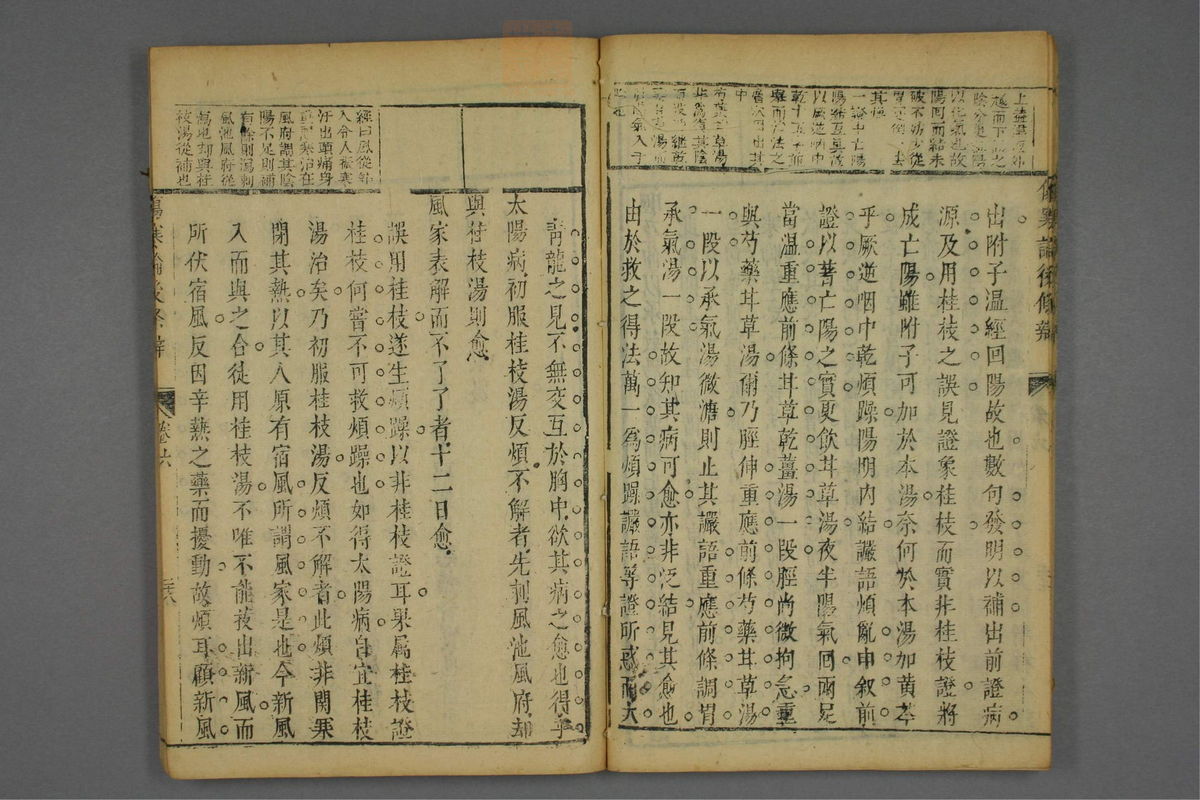 出附子溫經回陽故也數句發明以補出前證病
源及用桂枝之誤見證象桂枝而實非桂枝證將
成亡陽雖附子可加於本湯奈何於本湯加黃芩
乎厥逆咽中乾煩躁陽明內結讝語煩亂申叙前
證以著亡陽之實更飲甘草湯夜半陽氣回兩足
當溫重應前條甘草乾薑湯一段脛尚微拘急重
與芍藥甘草湯爾乃脛伸重應前條芍藥甘草湯
一段以承氣湯微溏則止其讝語重應前條調胃
承氣湯一段故知其病可愈亦非泛結見其愈也
由於救之得法萬一為煩躁讝語等證所惑而大
青龍之見不無交互於胸中欲其病之愈也得乎
太陽病初服桂枝湯反煩不解者先刺風池風府却
與桂枝湯則愈
風家表解而不了了者十二日愈
誤用桂枝遂生煩躁以非桂枝證耳果屬桂枝證
桂枝何嘗不可救煩躁也如得太陽病自宜桂枝
湯治矣乃初服桂枝湯反煩不解者此煩非關
閉其熱以其人原有宿風所謂風家是也今新風
入而與之合徒用桂枝湯不唯不能袪出新風而
所伏宿風反因辛熱之藥而擾動故煩耳顧新風
經曰風從外
入令人振寒
汗出頭痛身
重惡寒治在
風府調其陰
陽不足則補
有餘則瀉刺
風池風府從
瀉也却與桂
枝湯從補也
卷六